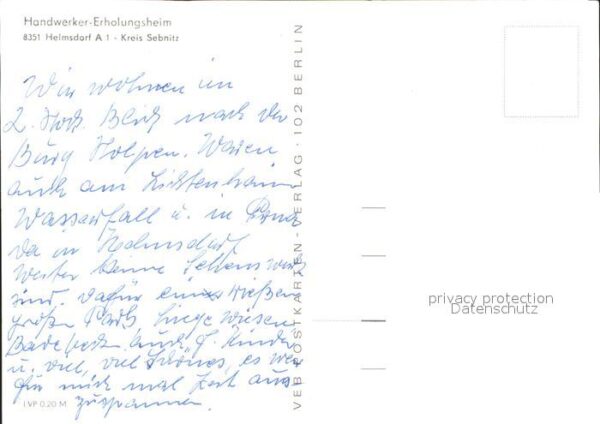 Handwerker-Erholungsheim
8351 Helmsdorf A 1 - Kreis Sebnitz
Wir wohnen im
2. Stock. Blick nach der
Burg Stolpen. Waren
auch am Lichtenhain
Wasserfall u. in Pirna
da in Helmsdorf
weiter keine Sehenswürd
sind. Dafür einen riesen
großen Park Liegewiesen
Badebeck auch f. Kinder
u. viel, viel Schönes, es war
für mich mal Zeit aus-
zuspannen.
I VP 0,20 M
VEB POSTKARTEN-VERLAG · 102 BERLIN
privacy protection
Datenschutz